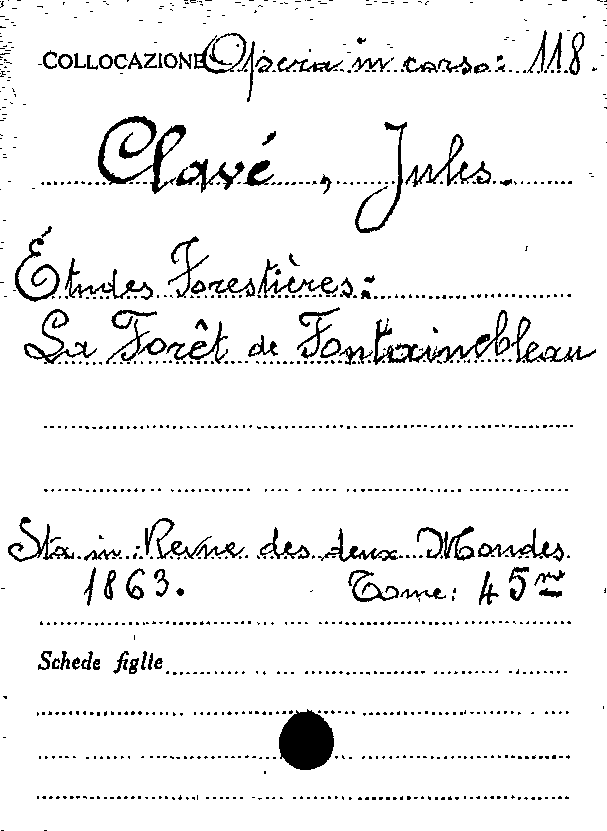 COLLOCAZIONE Opera in corso: 118.
Clavé, Jules.
Études Forestières:
La Forêt de Fontainebleau
Sta in: Revue des deux Mondes
1863. Tome: 45me
Schede figlie